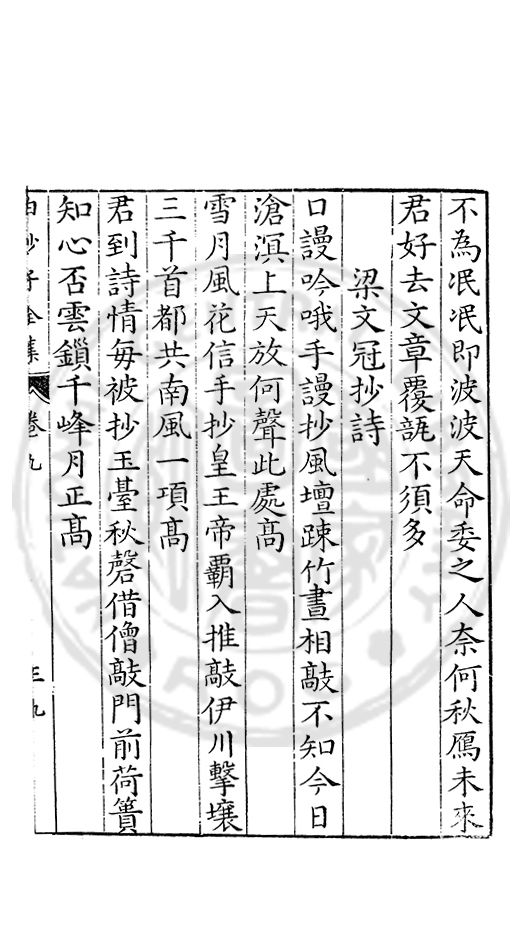 不為泯泯即波波天命委之人奈何秋鴈未來
君好去文章覆瓿不須多
梁文冠抄詩
口謾吟哦手謾抄風壇踈竹晝相敲不知今日
滄溟上天放何聲此處髙
雪月風花信手抄皇王帝覇入推敲伊川擊壤
三千首都共南風一項髙
君到詩情每被抄玉臺秋磬借僧敲門前荷蕢
知心否雲鎖千峰月正髙
白沙子全集 卷九 三九